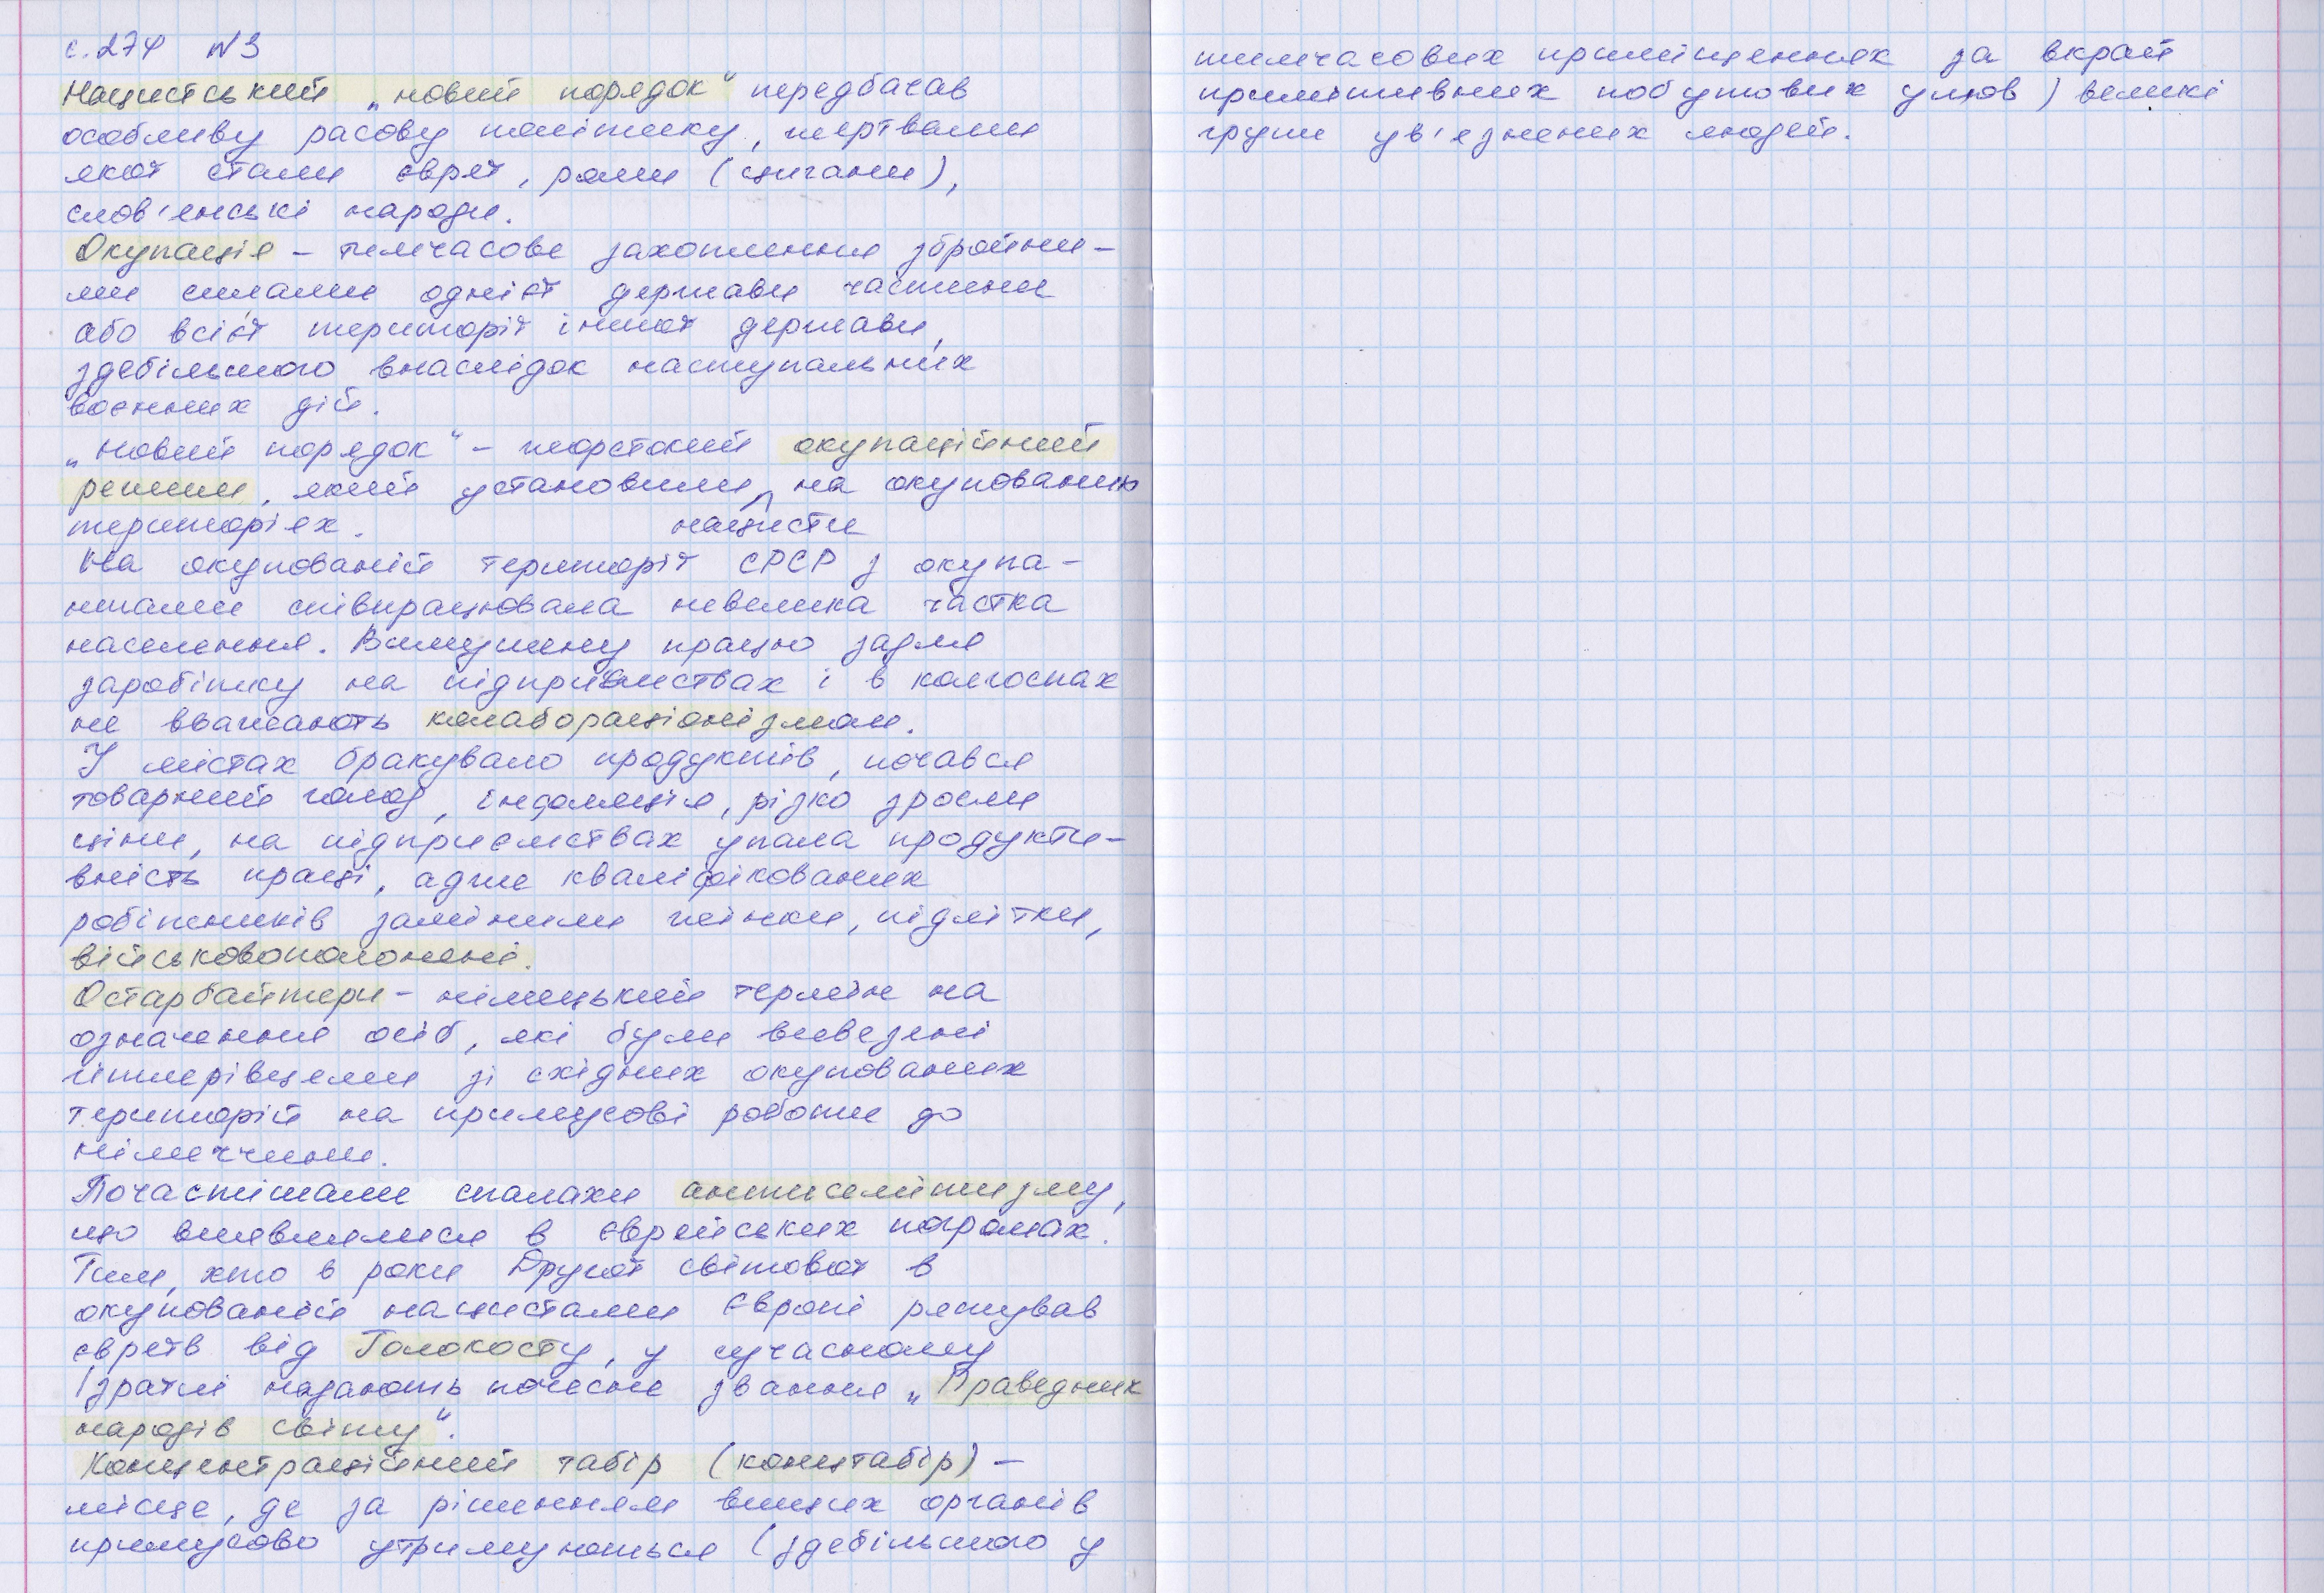 с. 274 №3
Нацистський „новий порядок" передбачав
особливу расову політику, жертвами
якої стали євреї, роми (цигани),
слов'янські народи.
Окупація – тимчасове захоплення збройни-
ми силами однієї держави частини
або всієї території іншої держави,
здебільшого внаслідок наступальних
воєнних дій.
„Новий порядок" – жорстокий окупаційний
режим, який установили на окупованих
територіях. нацисти
На окупованій території СРСР з окупа-
нтами співпрацювала невелика частка
населення. Вимушену працю задля
заробітку на підприємствах і в колгоспах
не вважають колабораціонізмом.
У містах бракувало продуктів, почався
товарний голод, інфляція, різко зросли
ціни, на підприємствах упала продукти-
вність праці, адже кваліфікованих
робітників замінили жінки, підлітки,
військовополонені.
Остарбайтери – німецький термін на
означення осіб, які були вивезені
гітлерівцями зі східних окупованих
територій на примусові роботи до
Німеччини.
Почастішали спалахи антисемітизму,
що виявлялися в єврейських погромах.
Тим, хто в роки Другої світової в
окупованій нацистами Європі рятував
євреїв від Голокосту, у сучасному
Ізраїлі надають почесне звання „Праведник
народів світу".
Концентраційний табір (концтабір) –
місце, де за рішенням вищих органів
примусово утримуються (здебільшого у
тимчасових приміщеннях за вкрай
примітивних побутових умов) великі
групи ув'язнених людей.